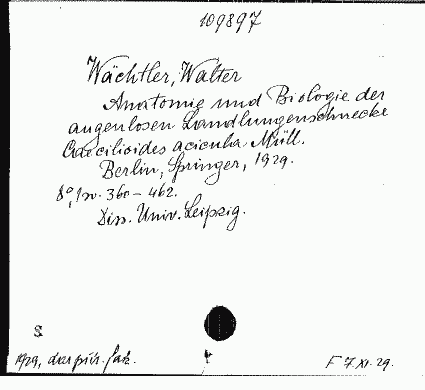 109897
Wächtler, Walter
Anatomie und Biologie der
augenlosen Landlungenschnecke
Caecilioides acicula Müll.
Berlin, Springer, 1929.
8°, 360-462.
Diss. Univ. Leipzig.
S
1929,
F 7.XI.29.